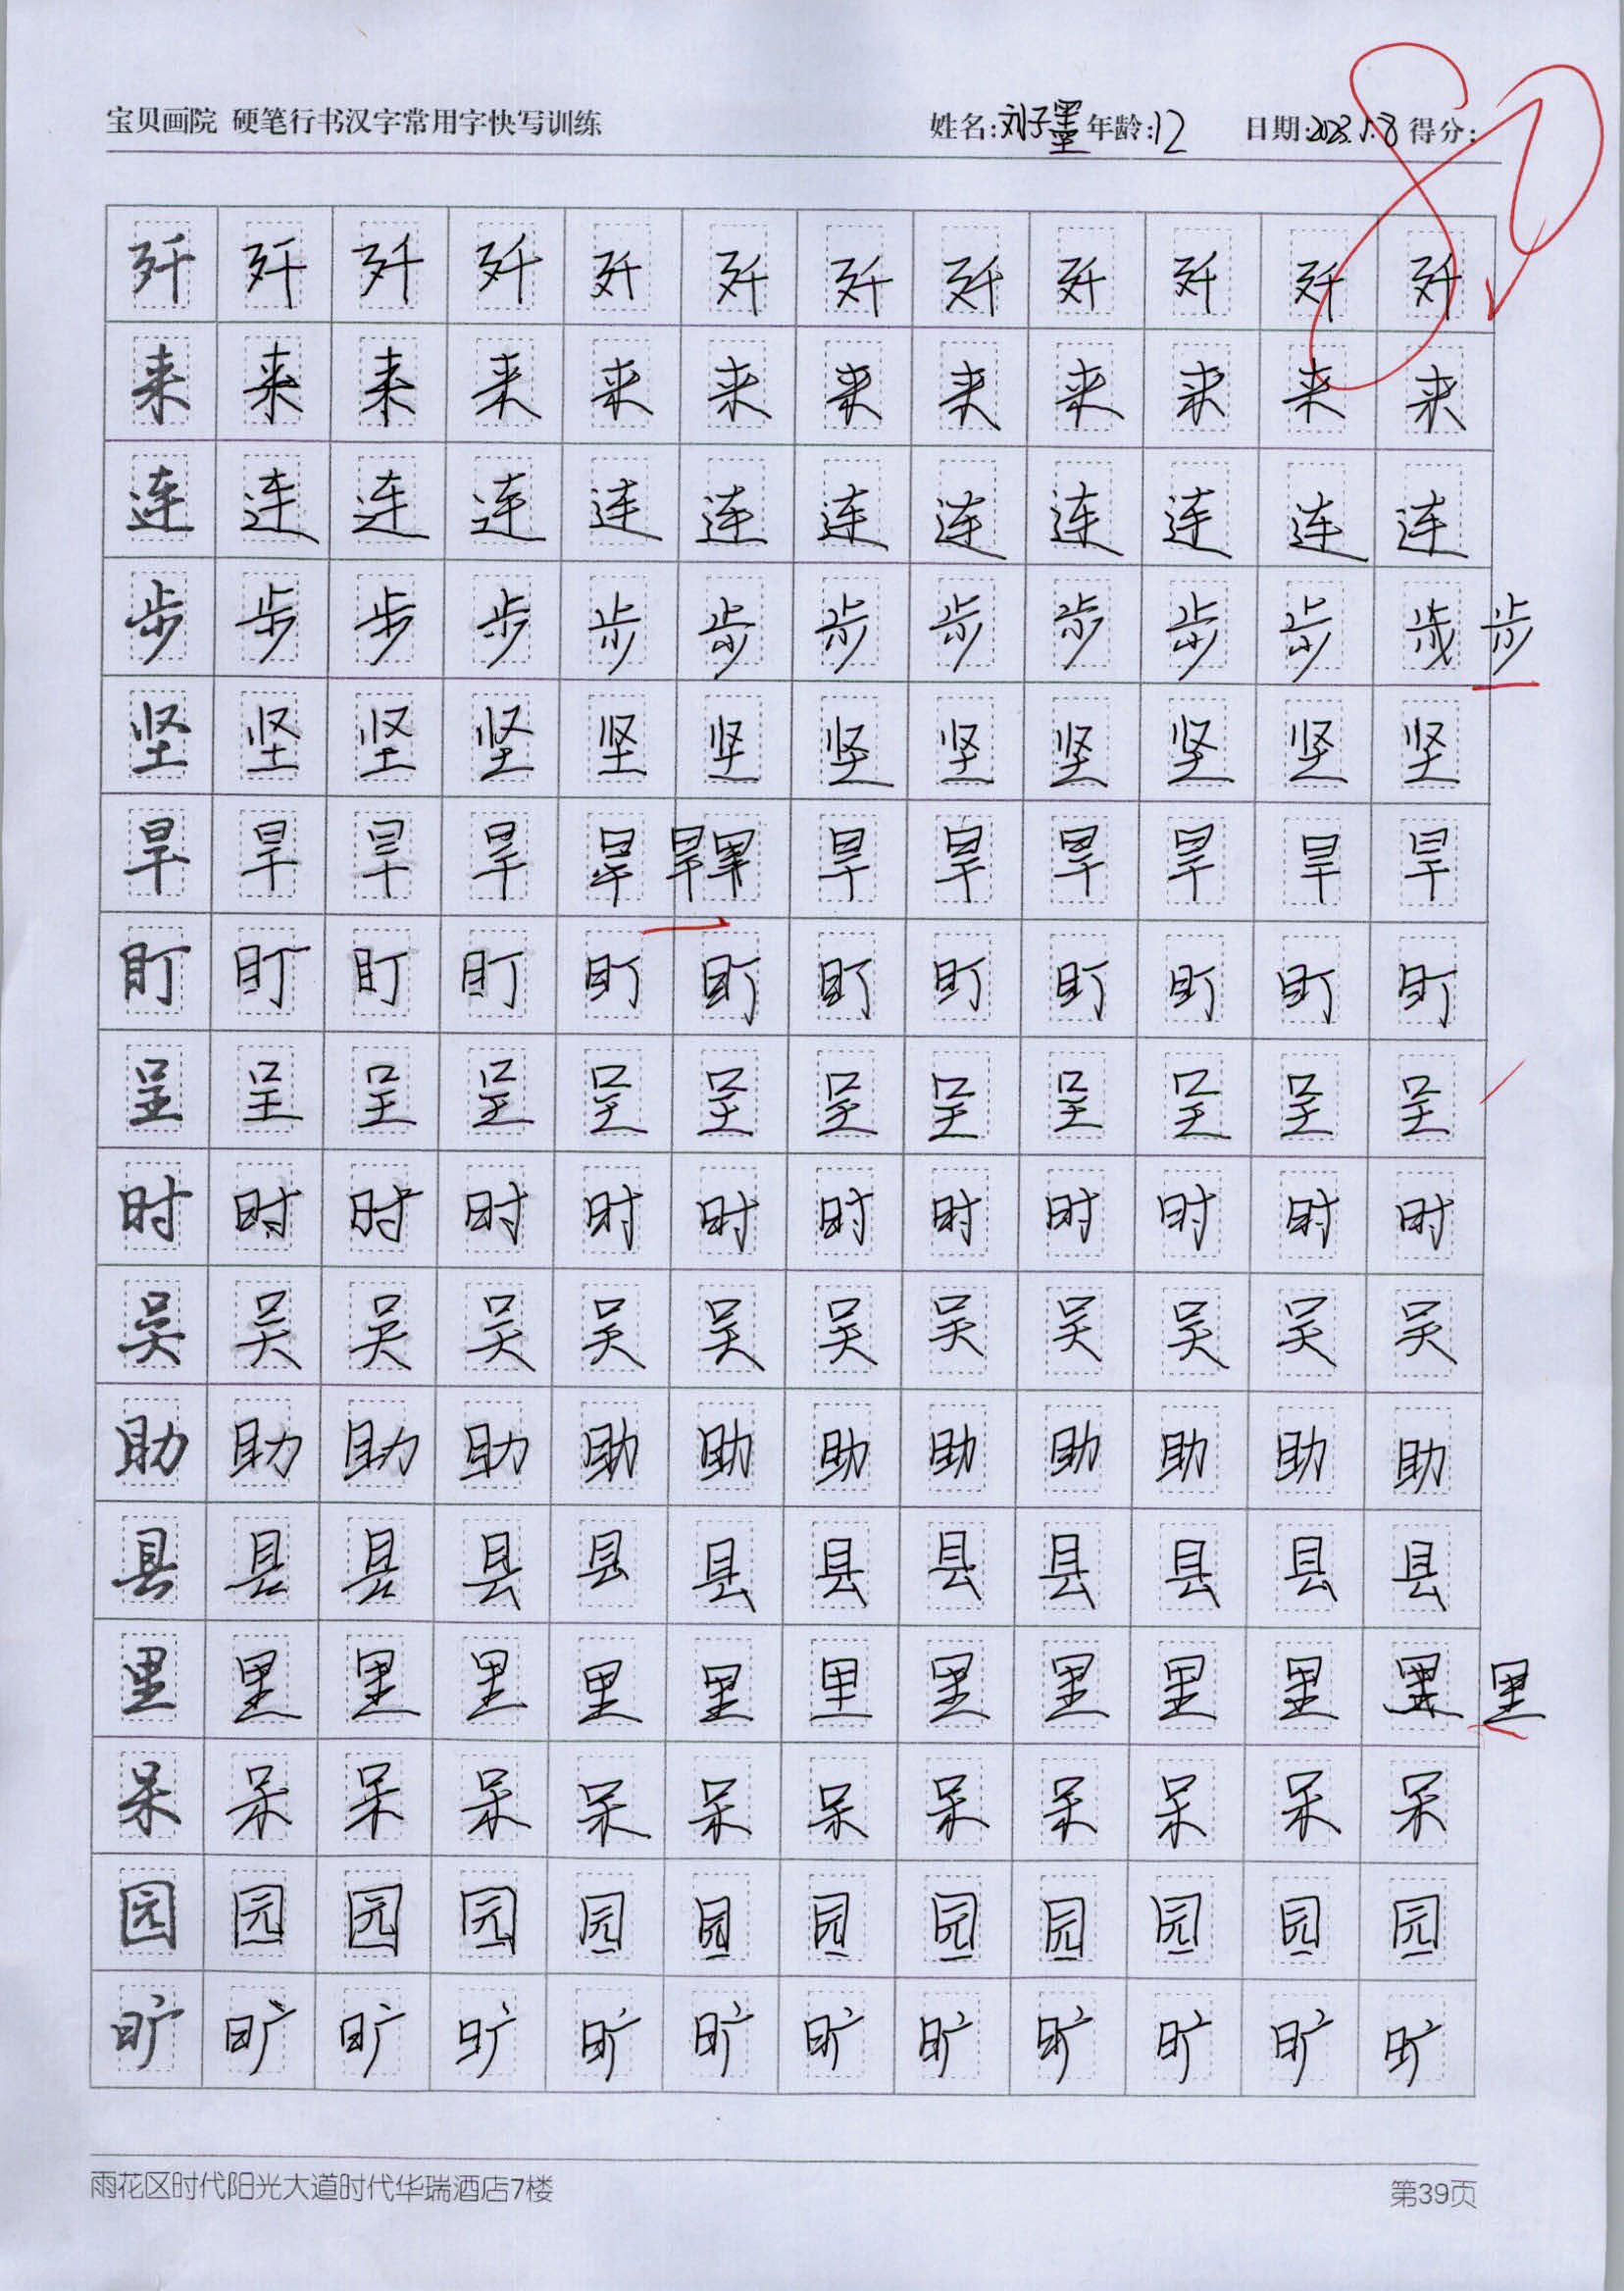 宝贝画院 硬笔行书汉字常用字快写训练 姓名:刘子墨 年龄:12 日期:2023.1.8 得分: 80
歼 歼 歼 歼 歼 歼 歼 歼 歼 歼 歼 歼
来 来 来 来 来 来 来 来 来 来 来 来
连 连 连 连 连 连 连 连 连 连 连 连
步 步 步 步 步 步 步 步 步 步 步 步
坚 坚 坚 坚 坚 坚 坚 坚 坚 坚 坚 坚
旱 旱 旱 旱 旱 旱 旱 旱 旱 旱 旱 旱
盯 盯 盯 盯 盯 盯 盯 盯 盯 盯 盯 盯
呈 呈 呈 呈 呈 呈 呈 呈 呈 呈 呈 呈
时 时 时 时 时 时 时 时 时 时 时 时
吴 吴 吴 吴 吴 吴 吴 吴 吴 吴 吴 吴
助 助 助 助 助 助 助 助 助 助 助 助
县 县 县 县 县 县 县 县 县 县 县 县
里 里 里 里 里 里 里 里 里 里 里 里
呆 呆 呆 呆 呆 呆 呆 呆 呆 呆 呆 呆
园 园 园 园 园 园 园 园 园 园 园 园
旷 旷 旷 旷 旷 旷 旷 旷 旷 旷 旷 旷
雨花区时代阳光大道时代华瑞酒店7楼 第39页